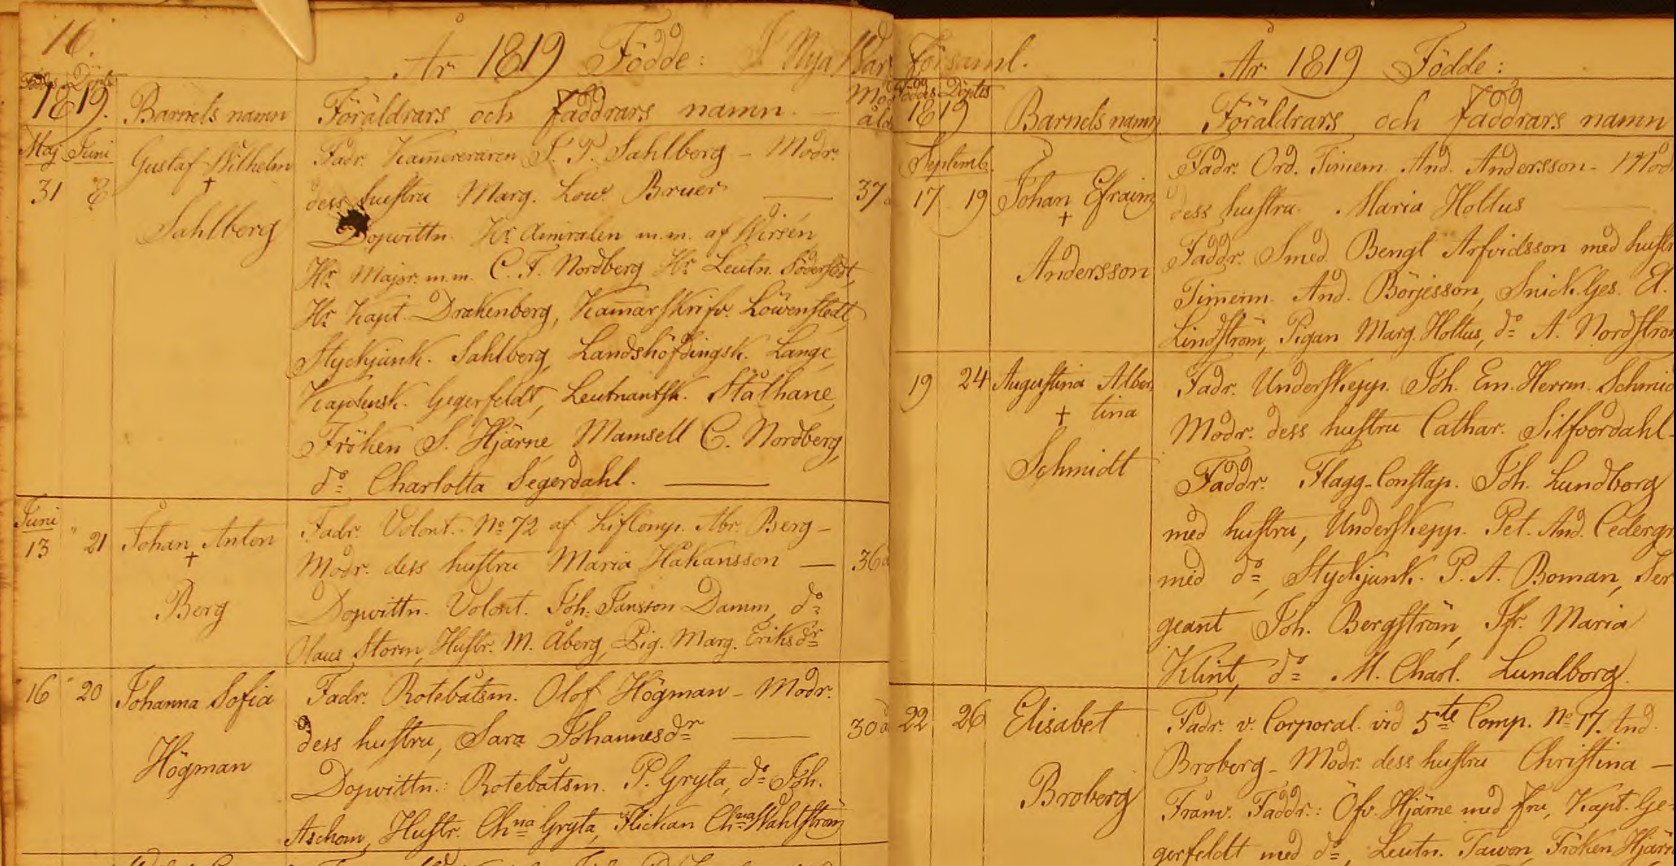 16.
År 1819 Födde: I Nya
Föddes Döptes
1819. Barnets namn Föräldrars och Faddrars namn.
Maj Juni Gustaf Wilhelm Fadr. Kamereraren P. Sahlberg – Modr.
31 8 † dess hustru Marg. Low. Bruer — 37
Sahlberg Dopwittn. Hr Amiralen m.m. af Wirsén,
Hr Major m.m. C. F. Nordberg, Hr Leutn.
Hr Kapt. Drakenberg, Kamarskrifv. Löwenstedt,
Styckjunk. Sahlberg, Landshöfdingsk. Lange,
Kaptensk. Gegerfeldt, Leutnantsk. Stålhane,
Fröken S. Hjärne, Mamsell C. Nordberg,
do Charlotta Segerdahl.
Juni
13 " 21 Johan Anton Fadr. Volont. No 72 af Lifkomp. Abr. Berg –
† Modr. dess hustru Maria Håkansson — 36
Berg Dopwittn. Volont. Joh. Jansson Damm, do
Olaus Storm, Hustr. M. Åberg, Pig. Marg. Eriksdr
16 " 20 Johanna Sofia Fadr. Rotebåtsm. Olof Högman – Modr.
dess hustru, Sara Johannesdr — 30
Högman Dopwittn.: Rotebåtsm. P. Gryta, do Joh.
Aschom, Hustr. Chna Gryta, Flickan Chna Wahlström
Församl. År 1819 Födde:
Föddes Döptes
1819 Barnets namn Föräldrars och Faddrars namn
Septemb. Fadr. Ord. Timerm. And. Andersson – Mod
17 19 Johan Efraim dess hustru Maria Holtus
† Faddr. Smed. Bengt Arfvidsson med hustr
Andersson Timerm. And. Börjesson, Snick.Ges. A.
Lindström, Pigan Marg. Holtus, do A. Nordström
19 24 Augustina Alber Fadr. Underskepp. Joh. Em. Herrm. Schmid
† tina Modr. dess hustru Cathar. Silfvordahl
Schmidt Faddr. Flagg-Constap. Joh. Lundborg
med hustru, Underskepp. Pet. And. Cedergr
med do, Styckjunk. P. A. Boman, Ser
geant Joh. Bergström, Jfr. Maria
Klint, do M. Charl. Lundborg.
22 26 Elisabet Fadr. v. Corporal. vid 5te Comp. No 17. And.
Broberg – Modr. dess hustru Christina –
Broberg Franv. Faddr.: Öfv. Hjärne med fru, Kapt. Ge
gerfeldt med do, Leutn. Tawon, Fröken Hjär